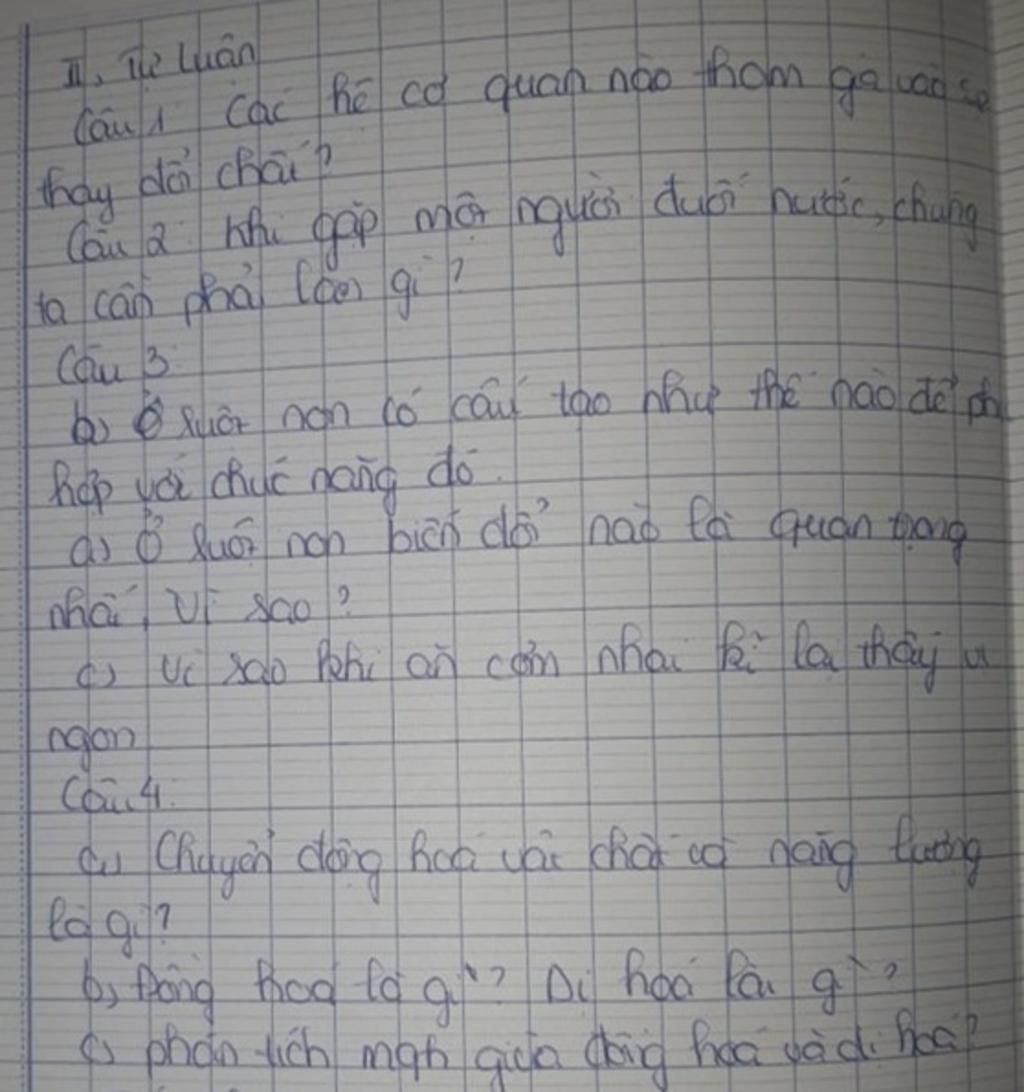 II, Tự luận
Câu 1 Các hệ cơ quan nào tham gia vào sự
thay đổi chất?
Câu 2 khi gặp một người đuối nước, chúng
ta cần phải làm gì?
Câu 3
b) Ở ruột non có cấu tạo như thế nào để
hợp với chức năng đó.
a) Ở ruột non biến đổi nào là quan trọng
nhất, vì sao?
c) Vì sao khi ăn cơm nhai kĩ lại thấy
ngon
Câu 4:
a) Chuyển động hoá vật chất và năng lượng
là gì?
b, Đồng hoá là gì? Dị hoá là gì?
c) phân tích mqh giữa đồng hoá và dị hoá?